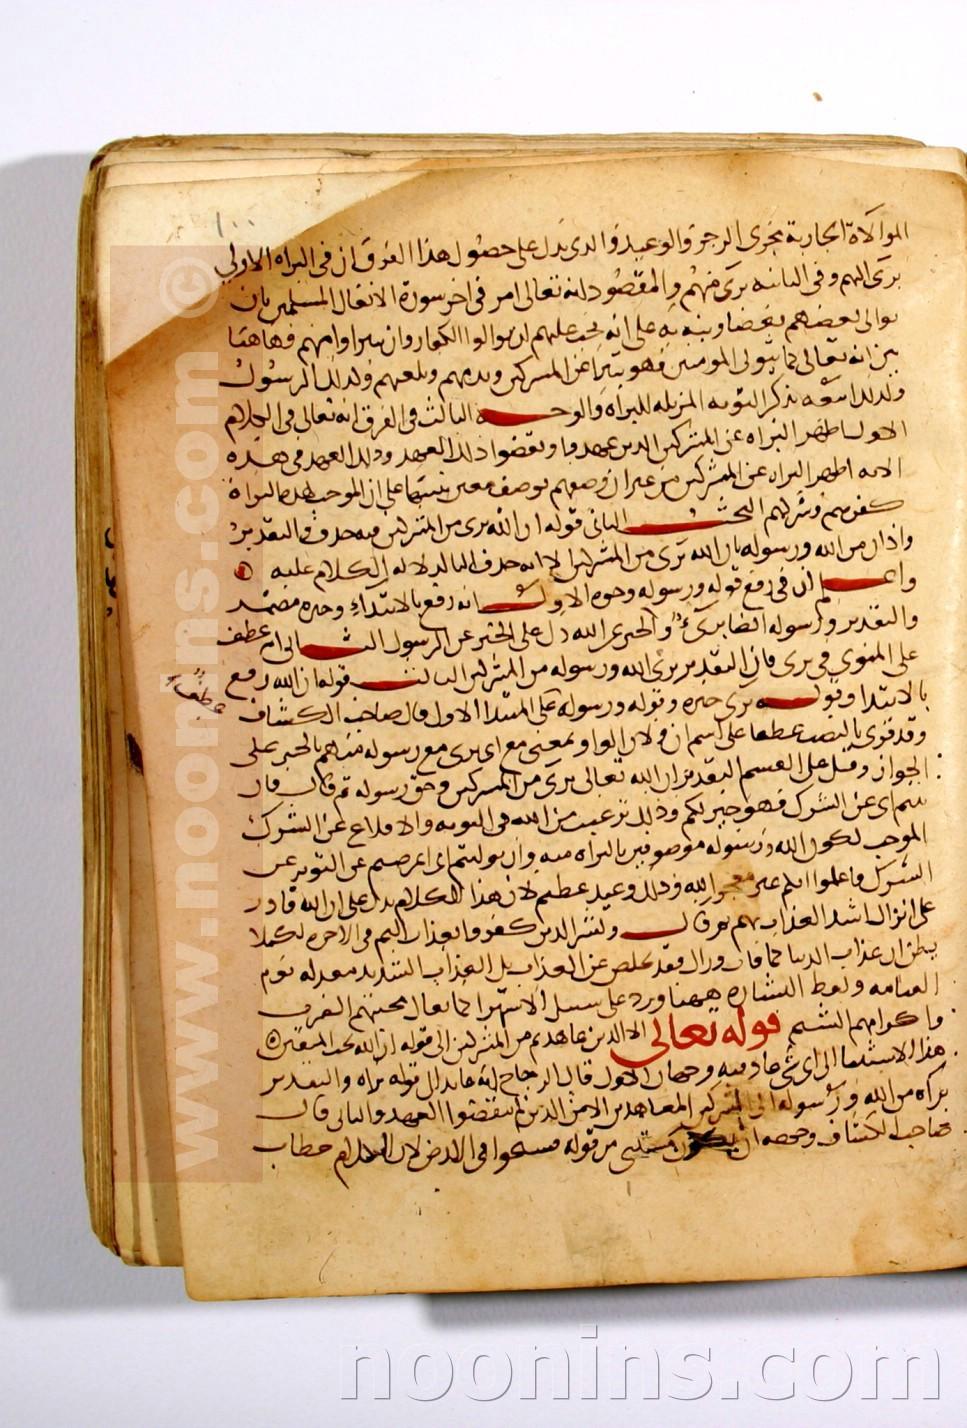 ١٠٠
الموالاة الجارية مجرى الزجر والوعيد والذى يدل على حصول هذا الفرق ان فى البراه الاولى
برى اليهم وفى الثانيه برى منهم والمقصود انه تعالى امر فى اخر سورة الانفال المسلمين بان
يوالى بعضهم بعضا ونبه به على انه يجب عليهم ان لا يوالوا الكفار وان يتبراوا منهم فهاهنا
بين انه تعالى كما يتولى المومنين فهو يتبرا عن المشركين ويذمهم ويلعنهم وكذلك الرسول
ولذلك اتبعه بذكر التوبه المزيله للبراه والوجه الثالث فى الفرق انه تعالى فى الكلام
الاول اظهر البراه عن المشركين الذين عهدوا ونقضوا ذلك العهد وذلك العهد فى هذه
الايه اظهر البراه عن المشركين من غير ان وصفهم بوصف معين تنبيها على ان الموجب لهذه البراة
كفرهم وشركهم البحث الثانى قوله ان الله برى من المشركين فيه حذف والتقدير
واذان من الله ورسوله بان الله برى من المشركين الا انه حذف البا لدلاله الكلام عليه
واعلم ان فى رفع قوله ورسوله وجوه الاول انه رفع بالابتداء وخبره مضمر
والتقدير ورسوله ايضا برىء والخبر عن الله دل على الخبر عن الرسول الثانى انه عطف
على المنوى فى برى فان التقدير برى الله ورسوله من المشركين الثالث قوله ان الله رفع
بالابتدا وقوله برى خبره وقوله ورسوله على المبتدا الاول قال صاحب الكشاف
عطف
وقد قرى بالنصب عطفا على اسم ان ولان الواو بمعنى مع اى برى مع رسوله منهم بالجر على
الجواز وقيل على القسم التقدير ان الله تعالى برى من المشركين وحق رسوله ثم قال فان
تبتم اى عن الشرك فهو خير لكم وذلك ترغيب من الله فى التوبه والاقلاع عن الشرك
الموجب لكون الله ورسوله موصوفين بالبراه منه وان توليتم اى اعرضتم عن التوبه عن
الشرك فاعلموا انكم غير معجزى الله وذلك وعيد عظيم لان هذا الكلام يدل على ان الله قادر
على انزال اشد العذاب بهم ثم قال وبشر الذين كفروا بعذاب اليم فى الاخره لكيلا
يظن ان عذاب الدنيا لما فات وزال فقد تخلص عن العذاب بل العذاب الشديد معد له يوم
القيامه ولفظ البشاره ههنا ورد على سبيل الاستهزا كما يقال تحيتهم الضرب
واكرامهم الشتم قوله تعالى الا الذين عاهدتم من المشركين الى قوله ان الله يحب المتقين
هذا الاستثنا الى اى شى عاد فيه وجهان الاول قال الزجاج انه عايد الى قوله براه والتقدير
براه من الله ورسوله الى المشركين المعاهدين الا من الذين لم ينقضوا العهد والثانى قال
صاحب الكشاف وجهه ان يكون مستثنى من قوله فسيحوا فى الارض لان الكلام خطاب
www.noonins.com ©
noonins.com